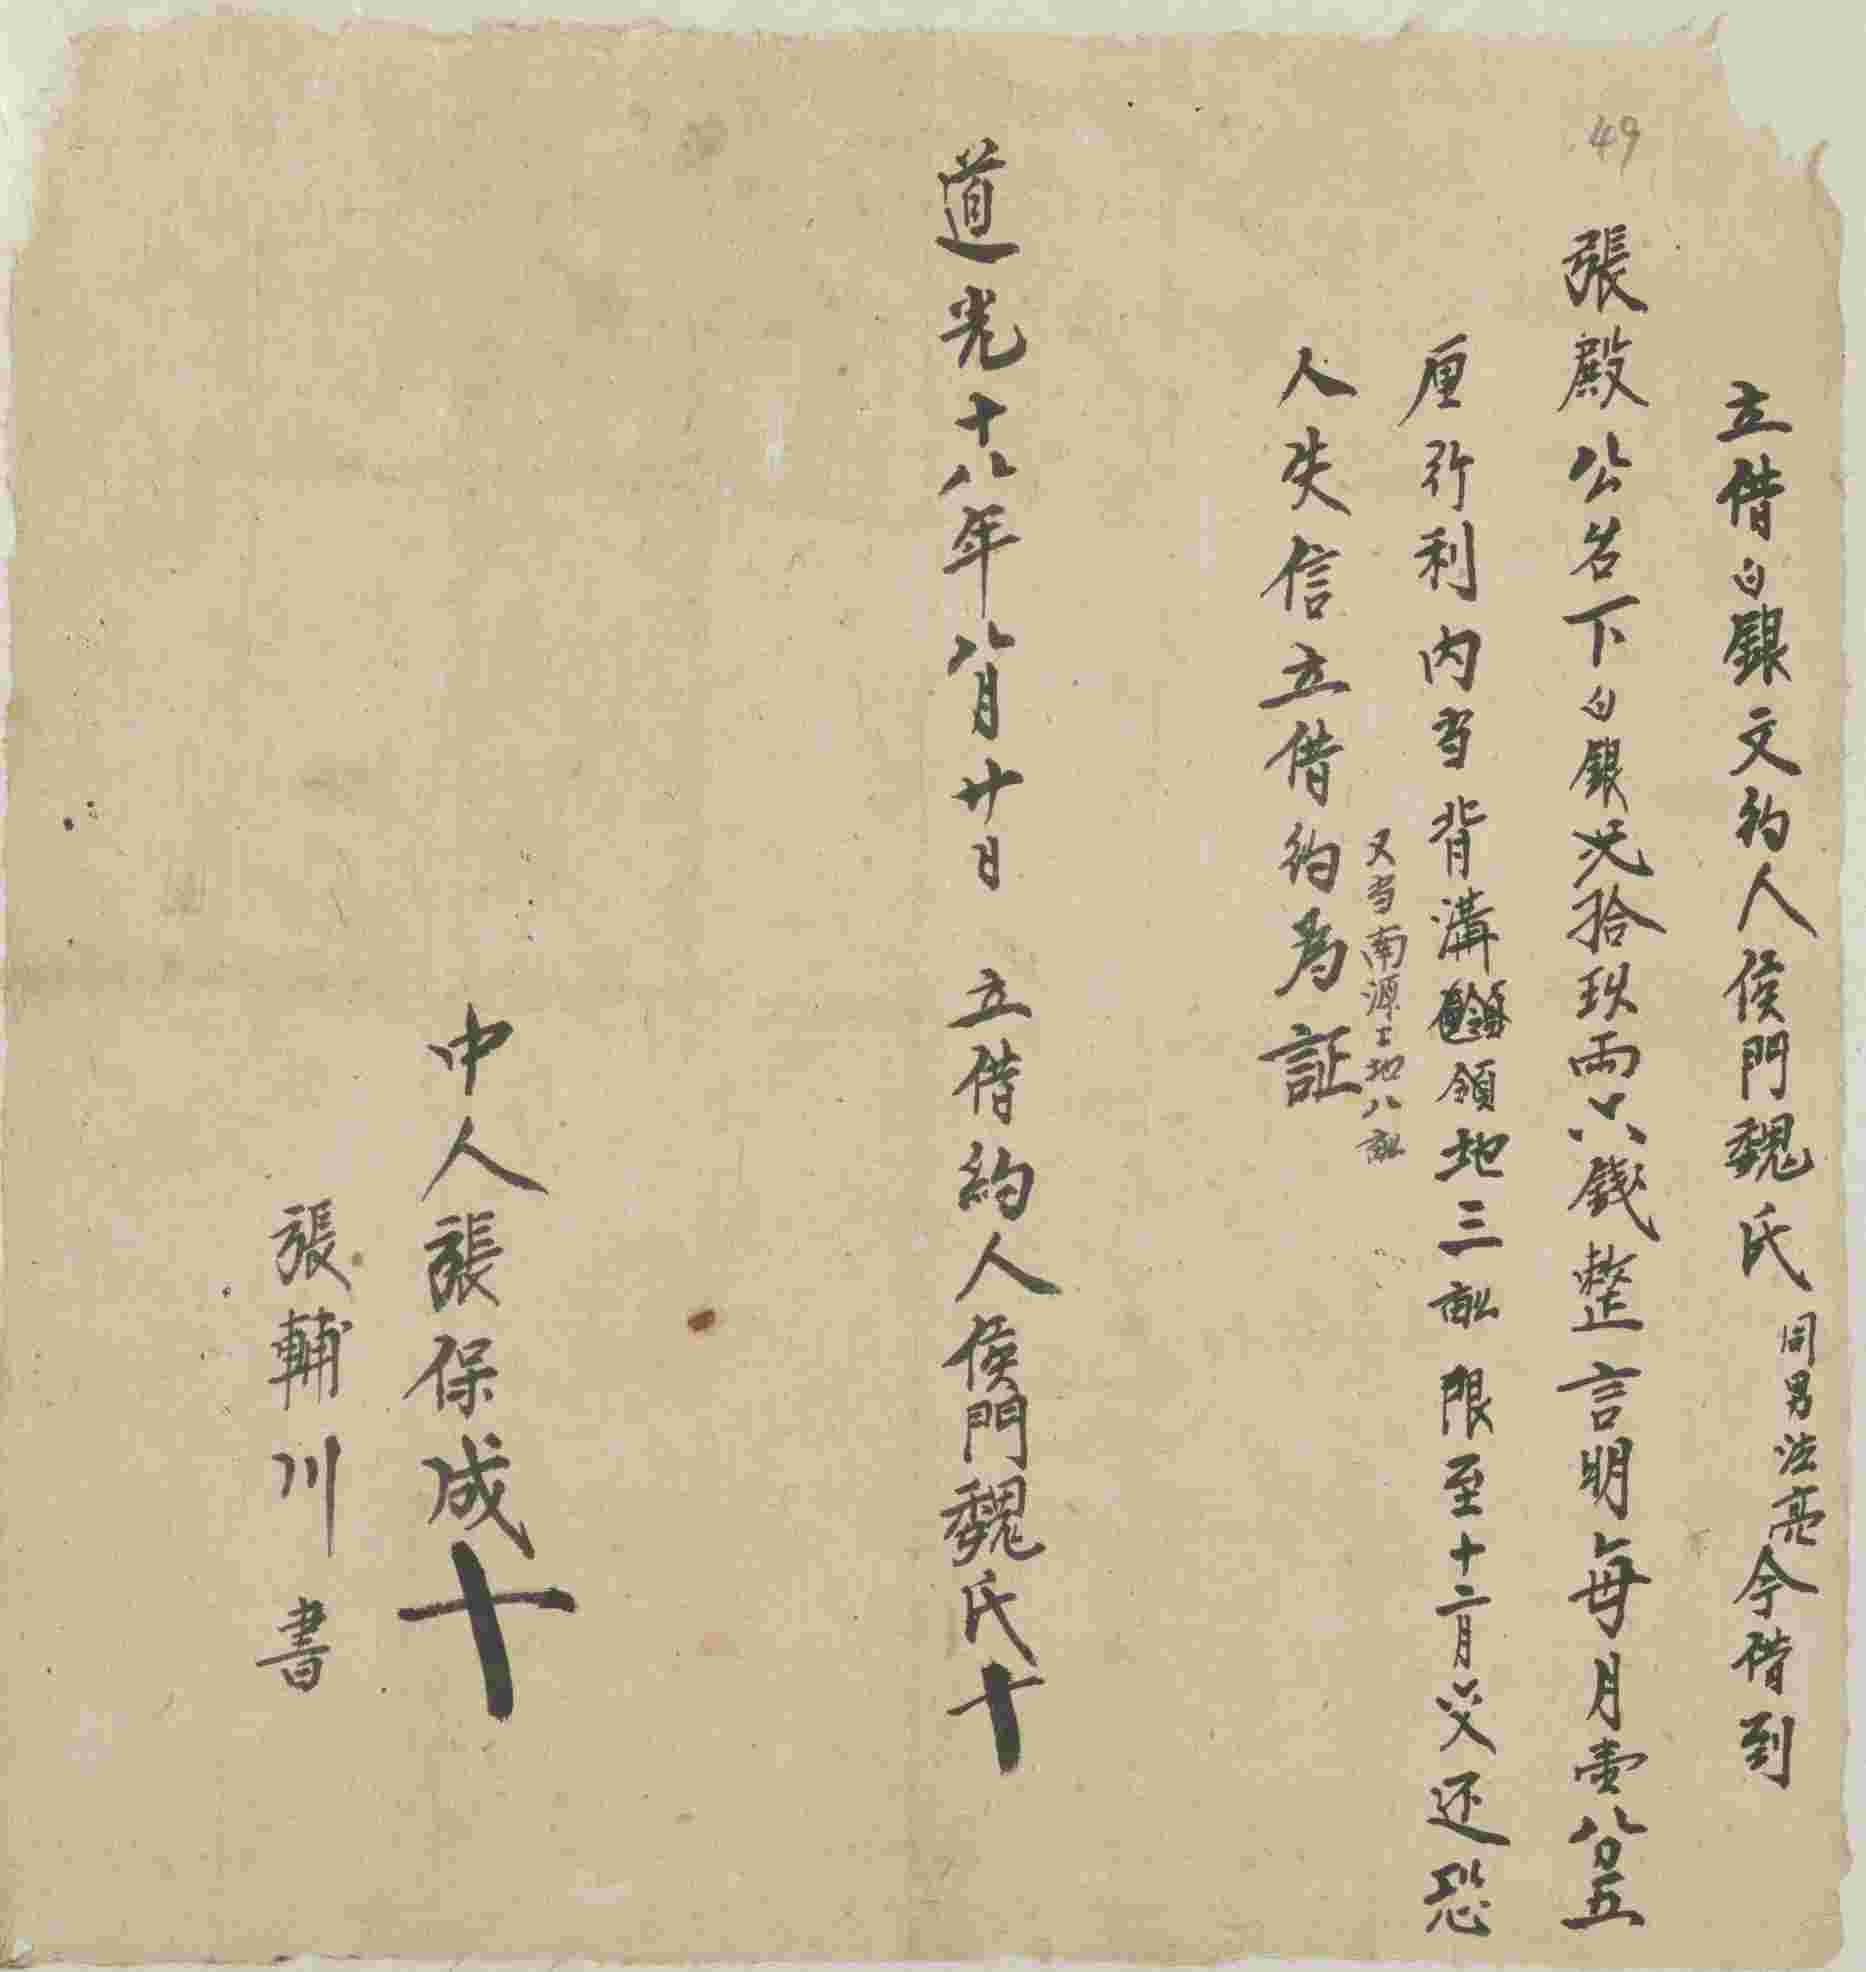 49
立借白銀文約人侯門魏氏同男法亮今借到
張殿公名下白銀弍拾玖兩六錢整言明每月壹分五
厘行利内当背溝領地三畝限至十二月交还恐
又当南源土地八畝
人失信立借約為証
道光十八年八月廿日 立借約人侯門魏氏十
中人張保成十
張輔川書